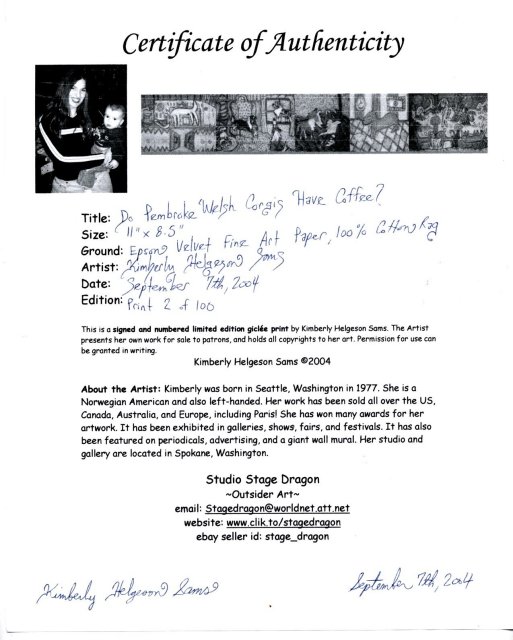 Certificate of Authenticity
Title: Do Pembroke Welsh Corgis Have Coffee?
Size: 11" x 8.5"
Ground: Epson Velvet Fine Art Paper, 100% Cotton Rag
Artist: Kimberly Helgeson Sams
Date: September 7th, 2004
Edition: Print 2 of 100
This is a signed and numbered limited edition giclée print by Kimberly Helgeson Sams. The Artist
presents her own work for sale to patrons, and holds all copyrights to her art. Permission for use can
be granted in writing.
Kimberly Helgeson Sams ©2004
About the Artist: Kimberly was born in Seattle, Washington in 1977. She is a
Norwegian American and also left-handed. Her work has been sold all over the US,
Canada, Australia, and Europe, including Paris! She has won many awards for her
artwork. It has been exhibited in galleries, shows, fairs, and festivals. It has also
been featured on periodicals, advertising, and a giant wall mural. Her studio and
gallery are located in Spokane, Washington.
Studio Stage Dragon
~Outsider Art~
email: Stagedragon@worldnet.att.net
website: www.clik.to/stagedragon
ebay seller id: stage_dragon
Kimberly Helgeson Sams September 7th, 2004